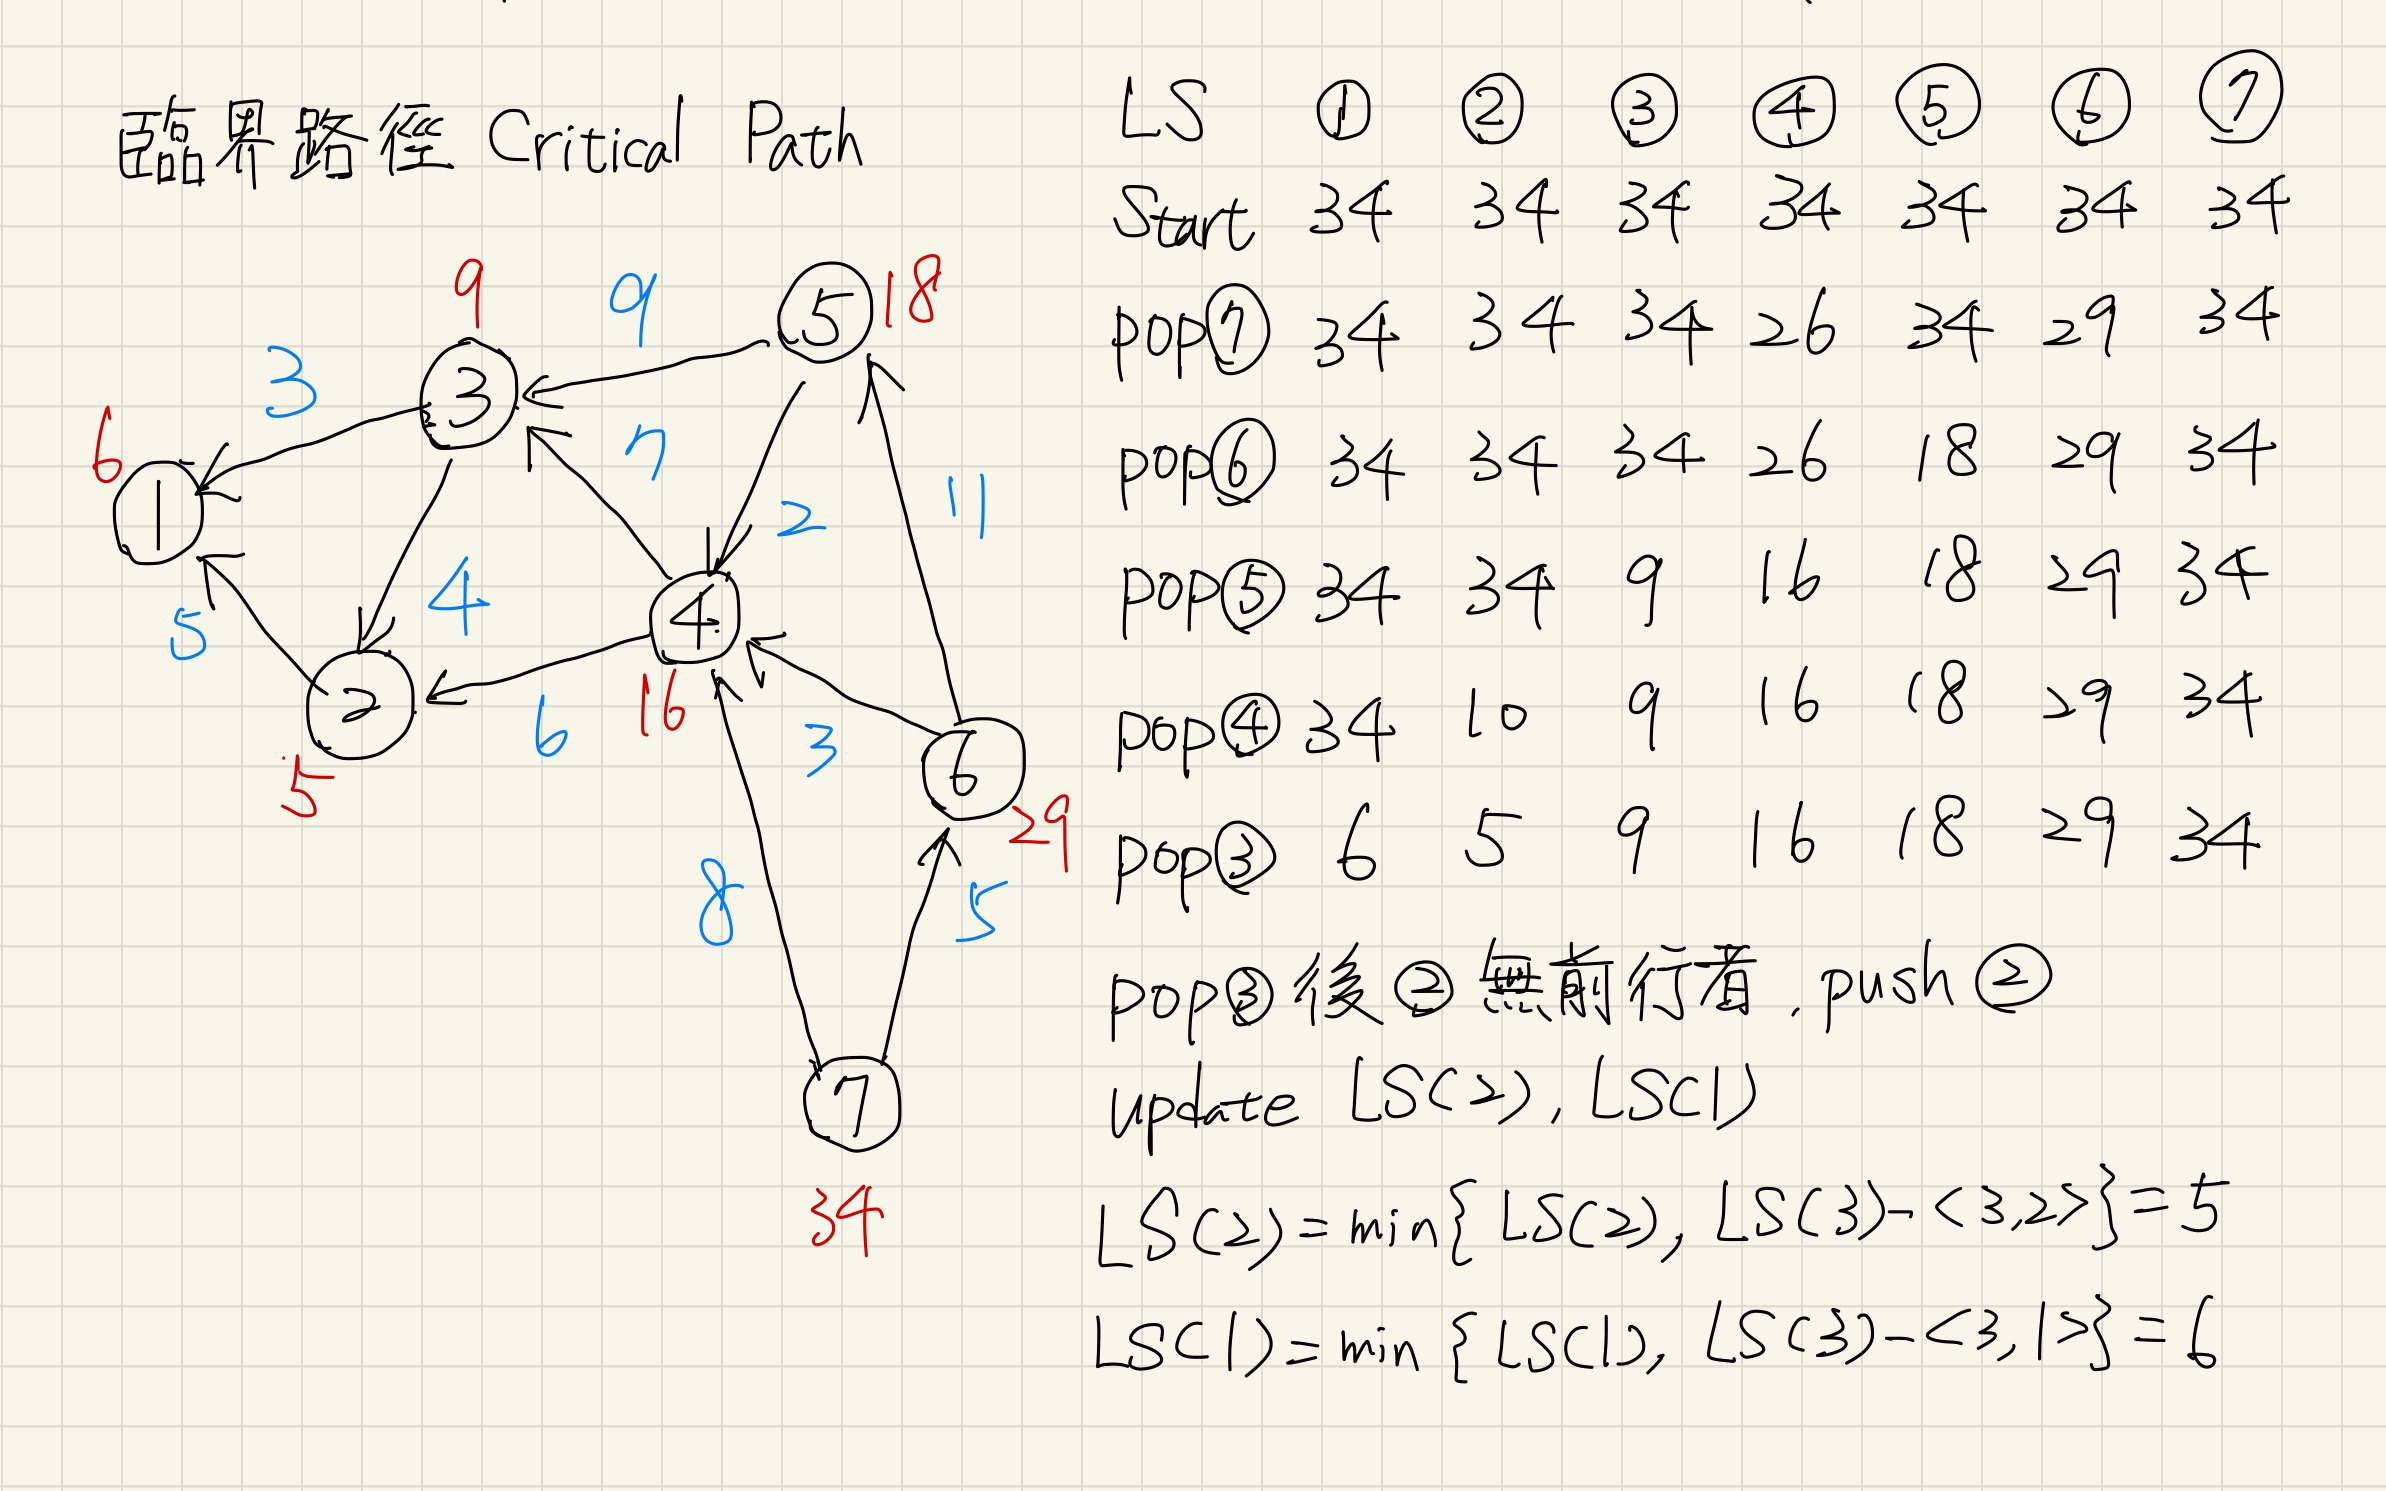 臨界路徑 Critical Path
9
9
5
18
3
3
7
6
1
2
11
4
4
5
2
6
16
3
6
5
29
8
5
7
34
LS ① ② ③ ④ ⑤ ⑥ ⑦
Start 34 34 34 34 34 34 34
pop⑦ 34 34 34 26 34 29 34
pop⑥ 34 34 34 26 18 29 34
pop⑤ 34 34 9 16 18 29 34
pop④ 34 10 9 16 18 29 34
pop③ 6 5 9 16 18 29 34
pop③後②無前行者, push②
update LS(2), LS(1)
LS(2)=min{LS(2), LS(3)-<3,2>}=5
LS(1)=min{LS(1), LS(3)-<3,1>}=6